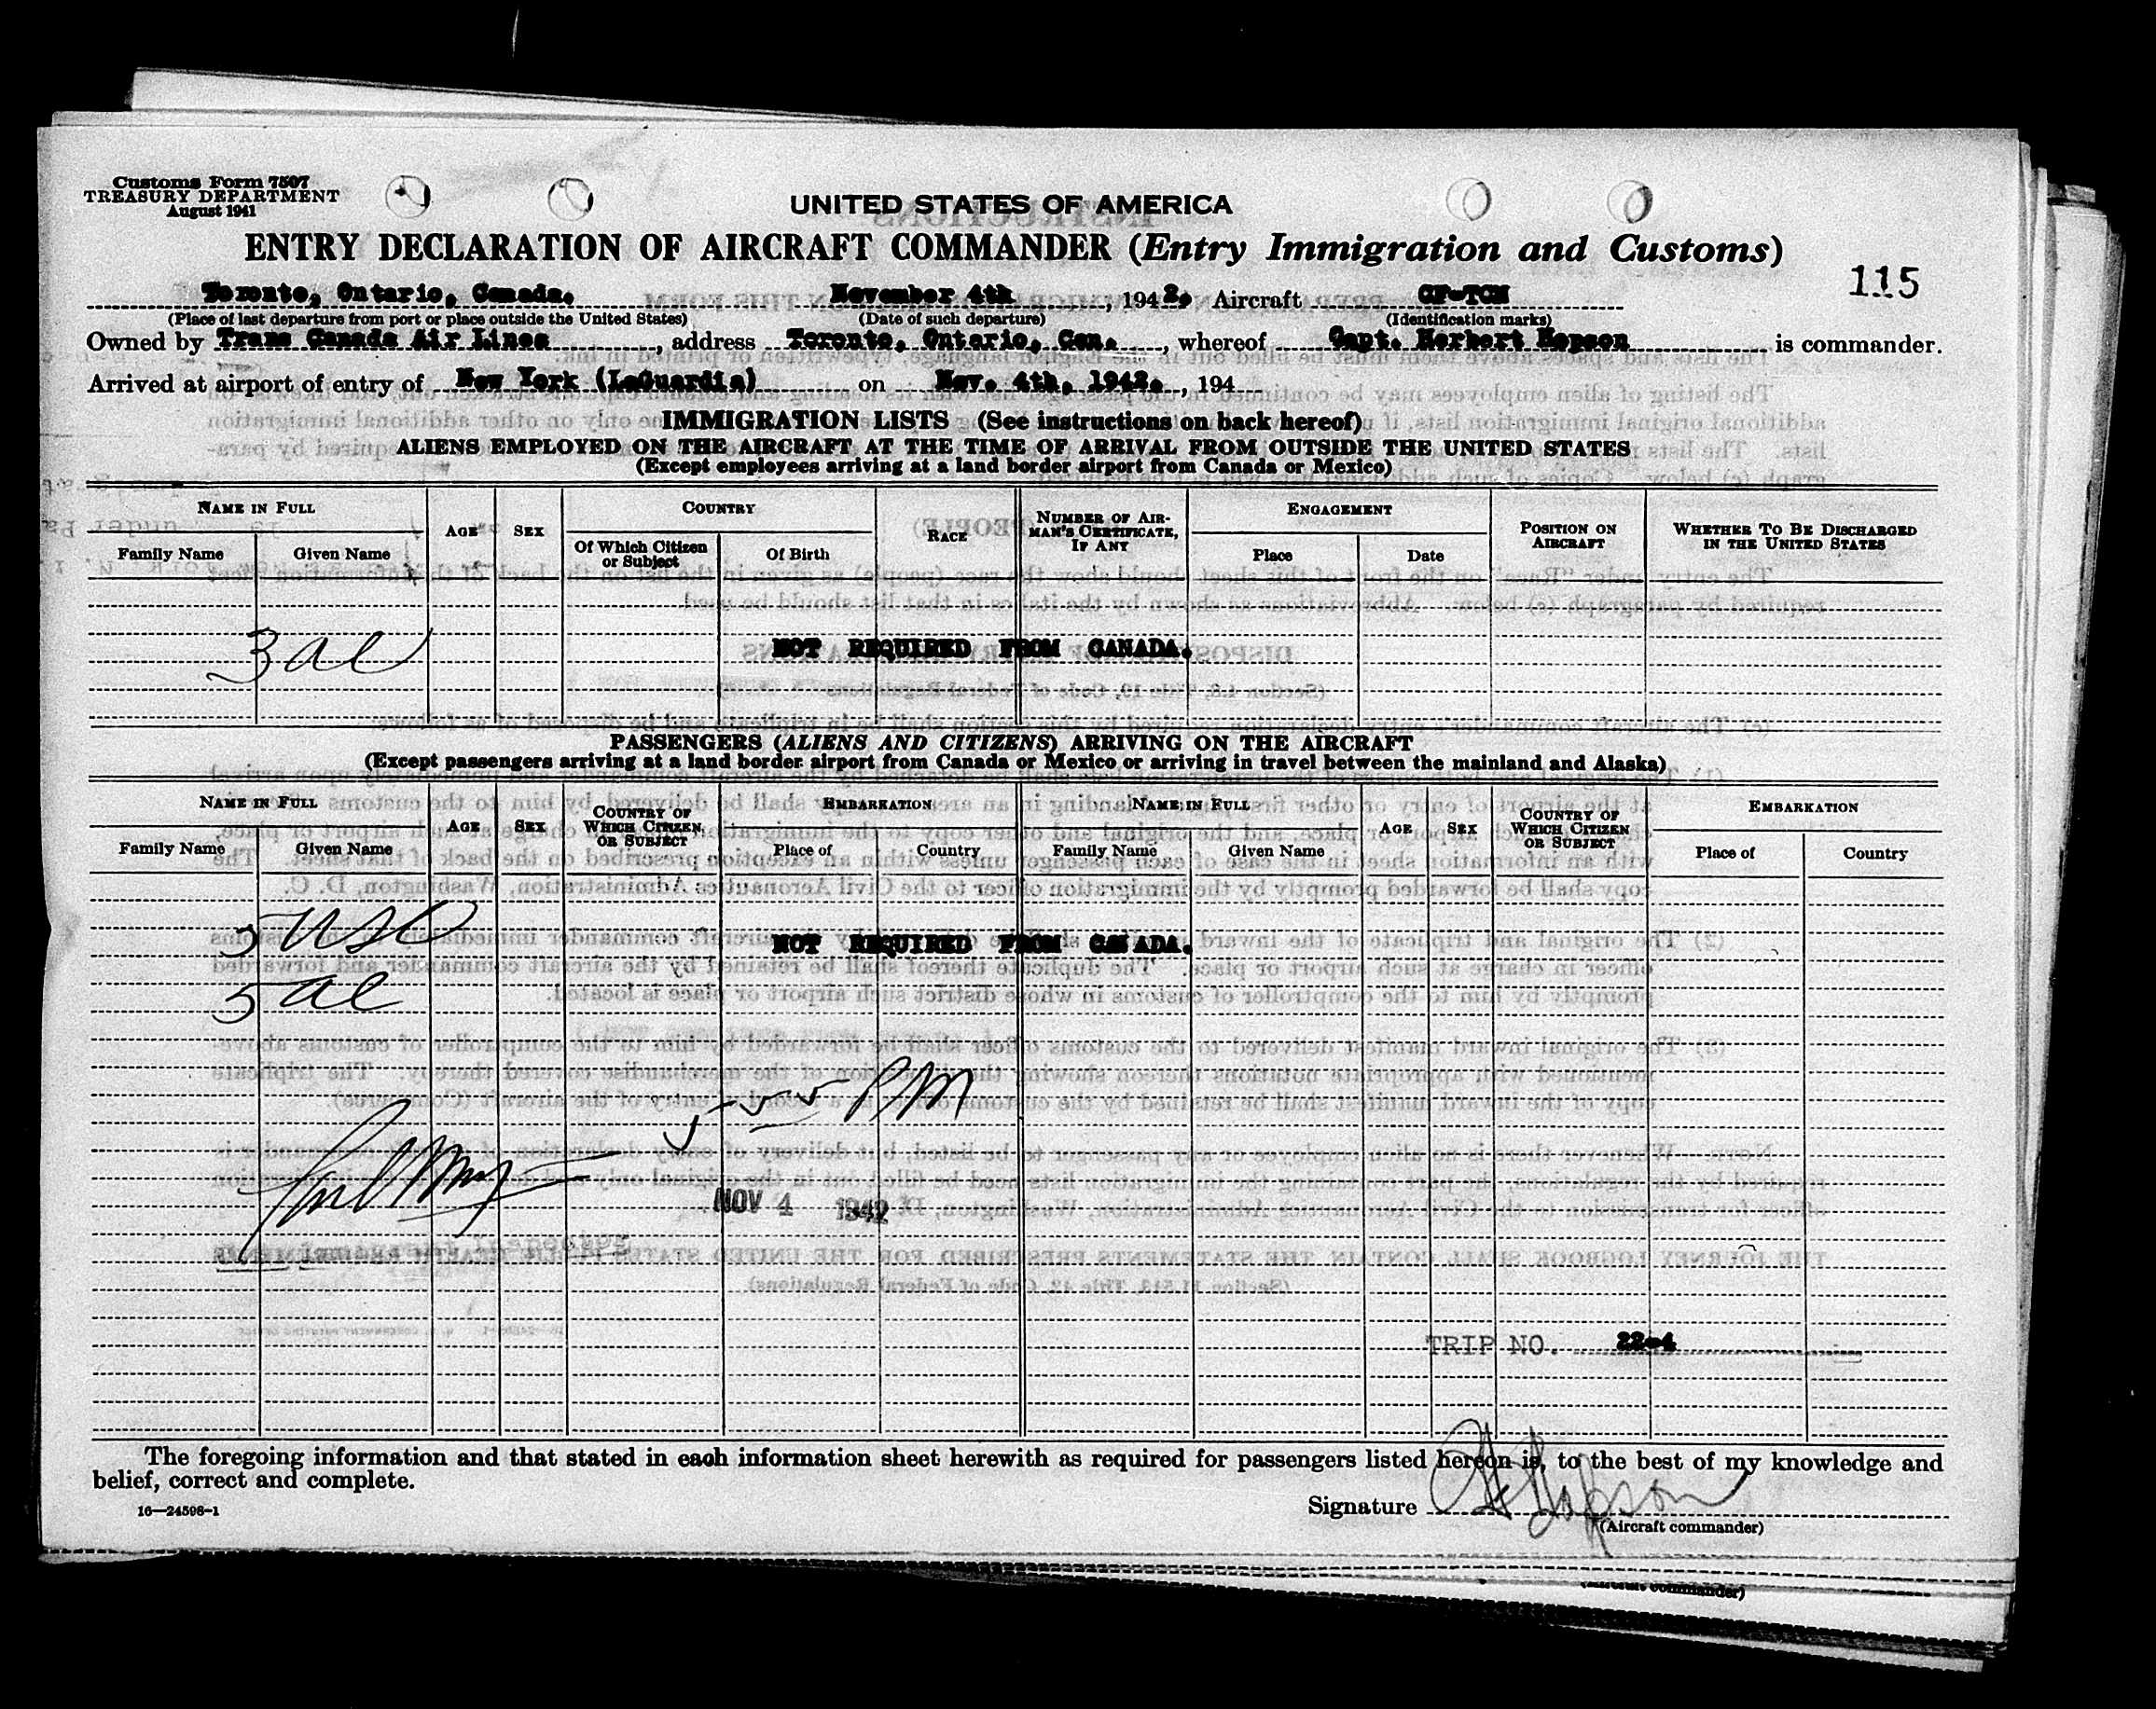 Customs Form 7507
TREASURY DEPARTMENT
August 1941
UNITED STATES OF AMERICA
ENTRY DECLARATION OF AIRCRAFT COMMANDER (Entry Immigration and Customs)
115
Toronto, Ontario, Canada. November 4th, 1942. Aircraft CF-TCM
(Place of last departure from port or place outside the United States) (Date of such departure) (Identification marks)
Owned by Trans Canada Air Lines, address Toronto, Ontario, Can., whereof Capt. Herbert Hopson is commander.
Arrived at airport of entry of New York (LaGuardia) on Nov. 4th, 1942., 194
IMMIGRATION LISTS (See instructions on back hereof)
ALIENS EMPLOYED ON THE AIRCRAFT AT THE TIME OF ARRIVAL FROM OUTSIDE THE UNITED STATES
(Except employees arriving at a land border airport from Canada or Mexico)
NAME IN FULL AGE SEX COUNTRY RACE NUMBER OF AIRMAN'S CERTIFICATE, IF ANY ENGAGEMENT POSITION ON AIRCRAFT WHETHER TO BE DISCHARGED IN THE UNITED STATES
Family Name Given Name Of Which Citizen or Subject Of Birth Place Date
3 al NOT REQUIRED FROM CANADA.
PASSENGERS (ALIENS AND CITIZENS) ARRIVING ON THE AIRCRAFT
(Except passengers arriving at a land border airport from Canada or Mexico or arriving in travel between the mainland and Alaska)
NAME IN FULL AGE SEX COUNTRY OF WHICH CITIZEN OR SUBJECT EMBARKATION NAME IN FULL AGE SEX COUNTRY OF WHICH CITIZEN OR SUBJECT EMBARKATION
Family Name Given Name Place of Country Family Name Given Name Place of Country
5 USC NOT REQUIRED FROM CANADA.
5 al
5-55 PM
NOV 4 1942
Immigrant Inspector
TRIP NO. 22-4
The foregoing information and that stated in each information sheet herewith as required for passengers listed hereon is, to the best of my knowledge and
belief, correct and complete.
16—24598-1
Signature H Hopson
(Aircraft commander)
(Aircraft commander)